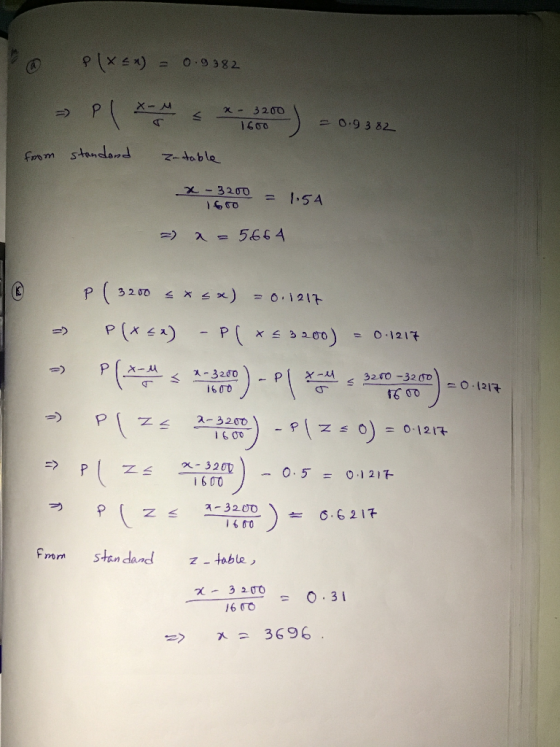 (A) P(X ≤ x) = 0.9382
⇒ P( (X-μ)/σ ≤ (x - 3200)/1600 ) = 0.9382
From standand z-table
(x - 3200)/1600 = 1.54
⇒ x = 5664
(B) P( 3200 ≤ X ≤ x) = 0.1217
⇒ P(X ≤ x) - P( X ≤ 3200) = 0.1217
⇒ P( (X-μ)/σ ≤ (x-3200)/1600 ) - P( (X-μ)/σ ≤ (3200-3200)/1600 ) = 0.1217
⇒ P( Z ≤ (x-3200)/1600 ) - P( Z ≤ 0) = 0.1217
⇒ P( Z ≤ (x-3200)/1600 ) - 0.5 = 0.1217
⇒ P( Z ≤ (x-3200)/1600 ) = 0.6217
From standand z-table,
(x - 3200)/1600 = 0.31
⇒ x = 3696.